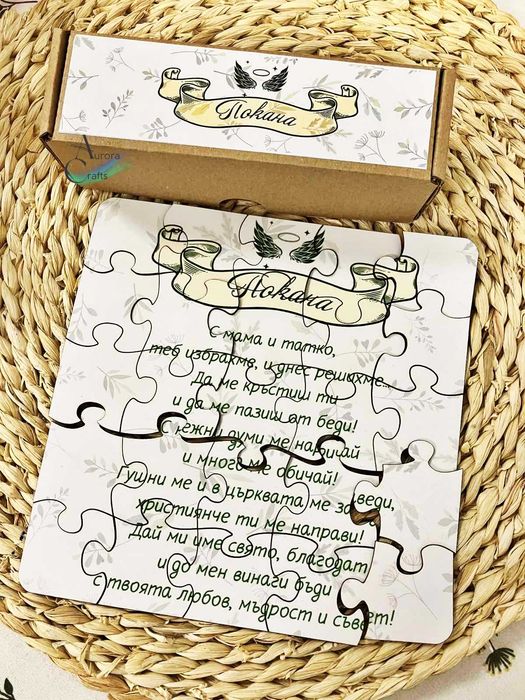 Покана
Aurora
Crafts
Покана
С мама и татко,
теб избрахме, и днес решихме...
Да ме кръстиш ти
и да ме пазиш от беди!
С нежни думи ме наричай
и много ме обичай!
Гушни ме и в църквата ме заведи,
християнче ти ме направи!
Дай ми име свято, благодат
и до мен винаги бъди
с твоята любов, мъдрост и съвет!